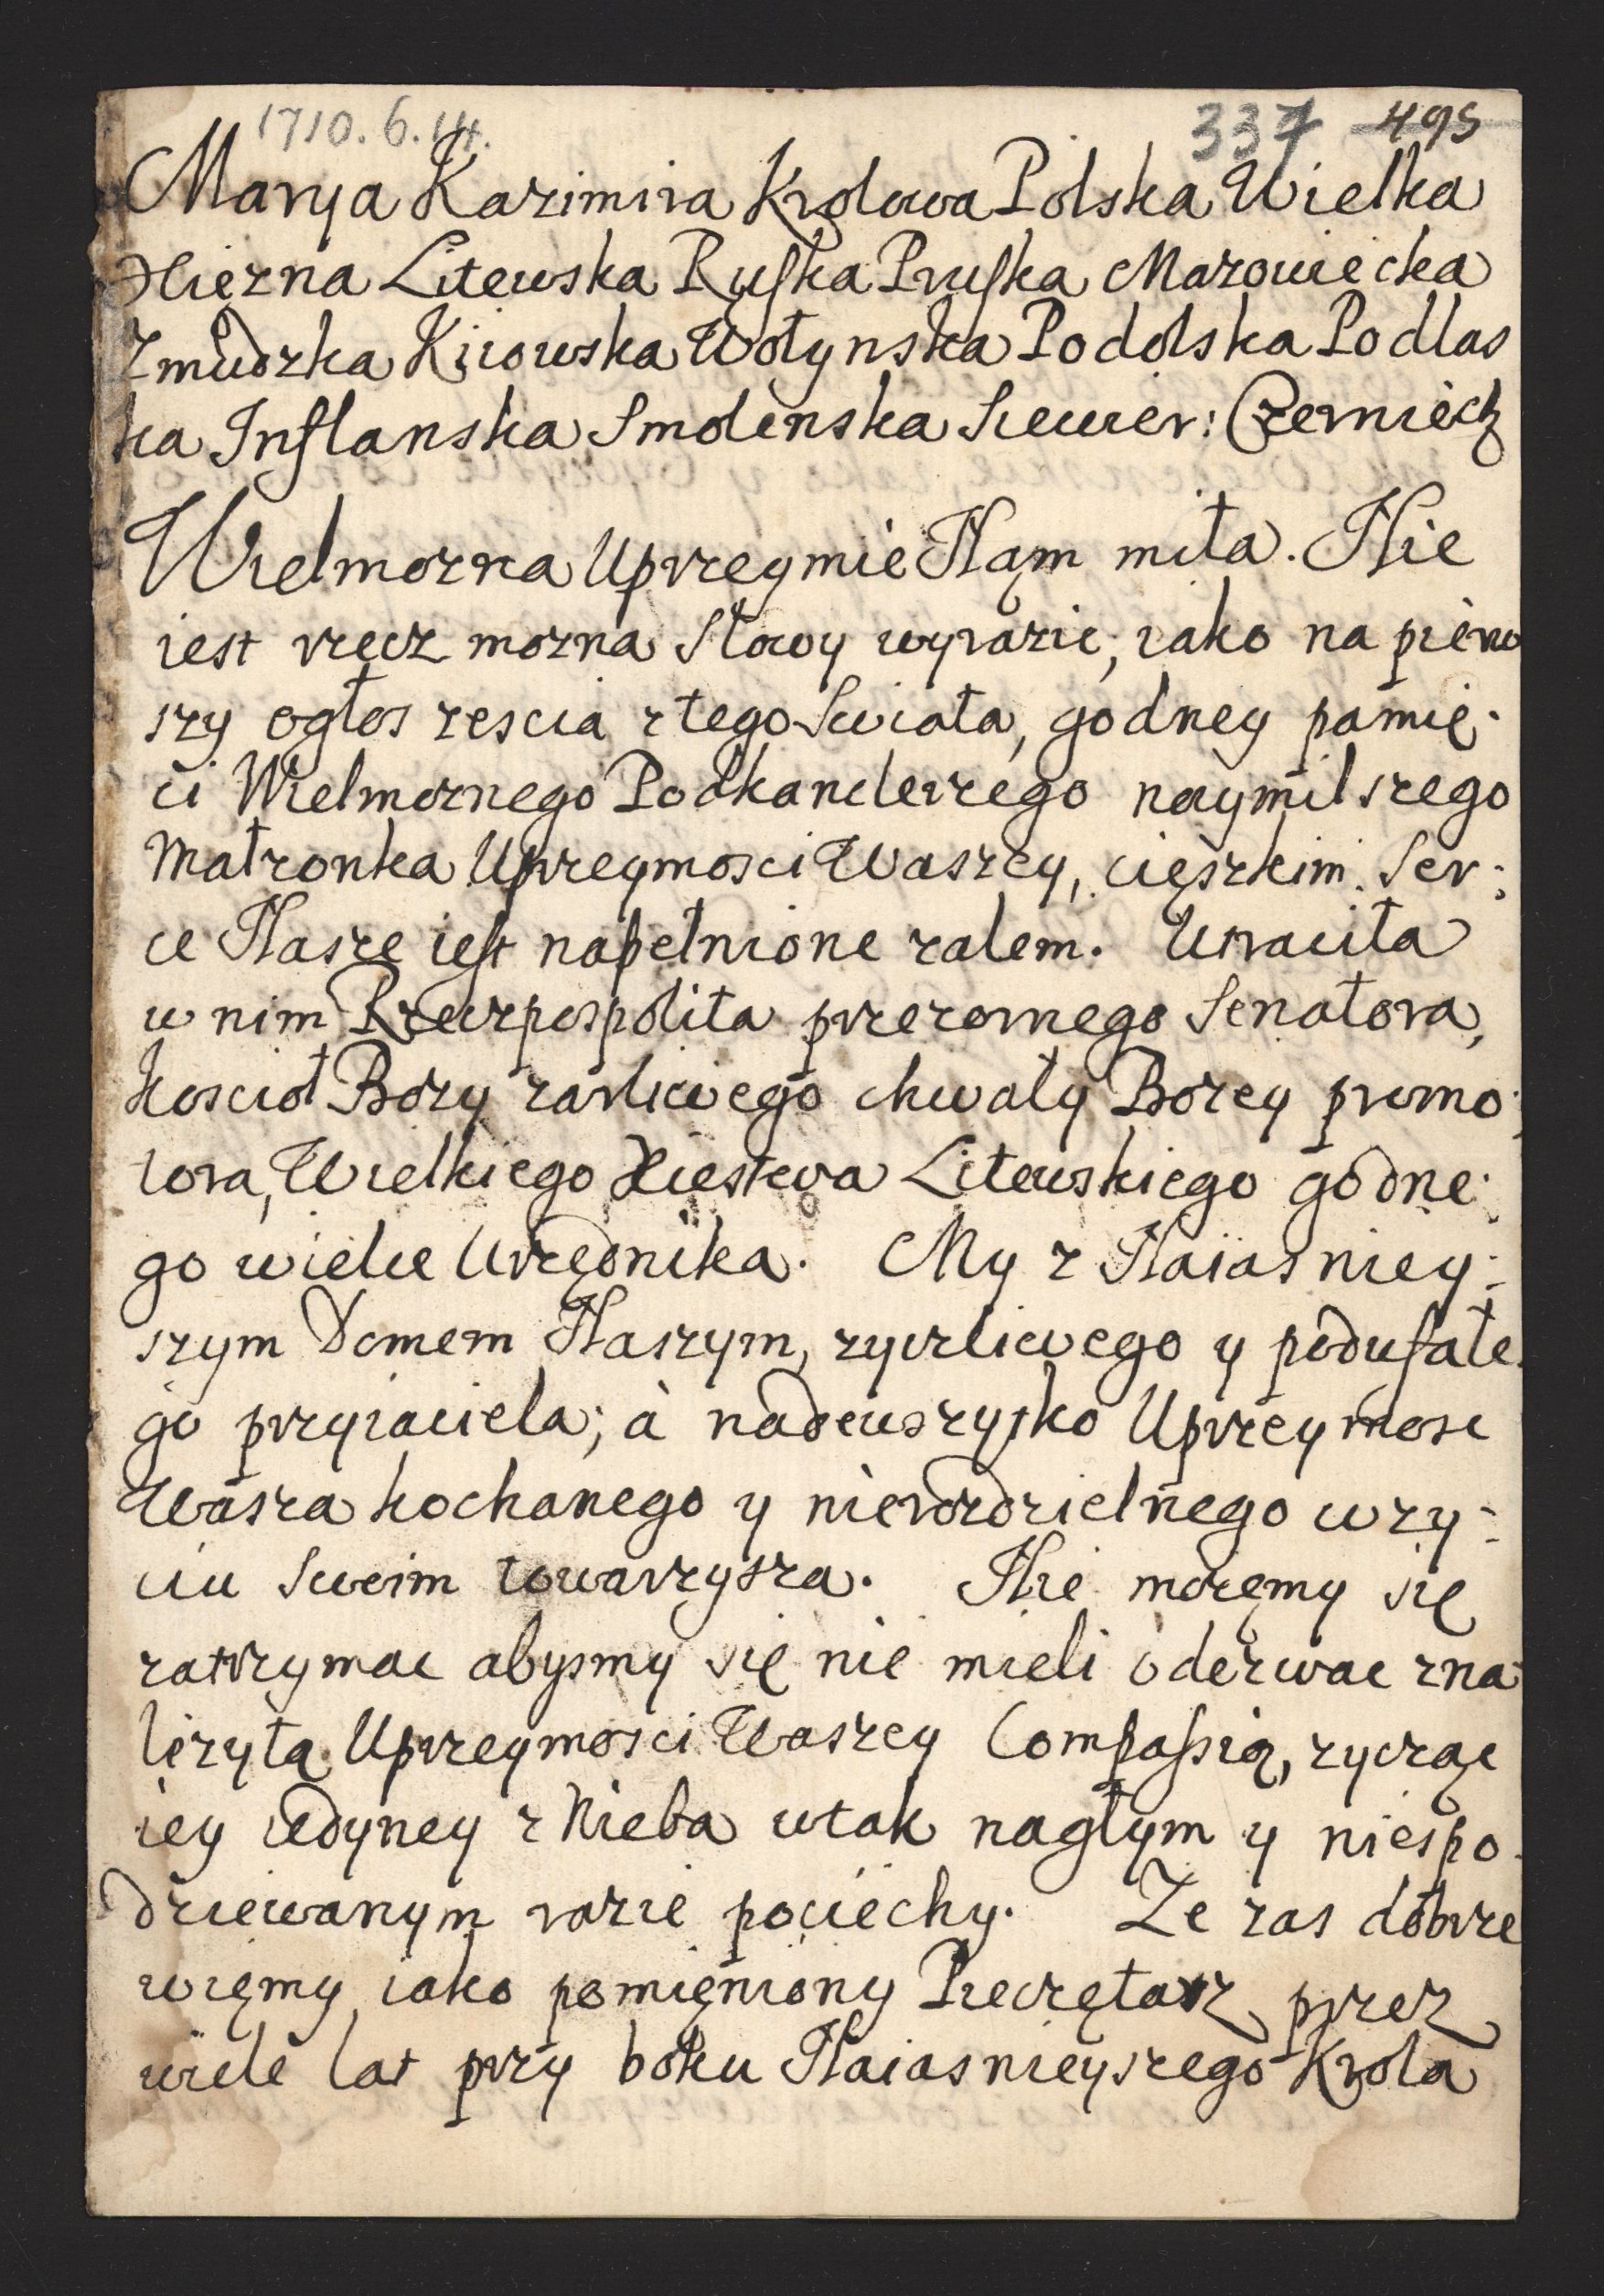 1710. 6. 14.
337 495
Marya Kazimira Krolowa Polska Wielka
Xiezna Litewska Ruska Pruska Mazowiecka
Zmudzka Kijowska Wołynska Podolska Podlas
ka Inflanska Smolenska Siewier: Czerniech
Wielmozna Uprzeymie Nąm miła. Nie
iest rzecz mozna Słowy wyrazic, iako na pierw
szy ogłos zescia z tego Swiata, godney pamię-
ci Wielmoznego Podkanclerzego naymilszego
Małzonka Uprzeymosci Waszey, cięszkim Ser:
ce Nasze iest napełnione zalem. Utraciła
w nim Rzeczpospolita przezornego Senatora,
Koscioł Bozy zarliwego chwały Bozey promo:
tora, Wielkiego Xiestwa Litewskiego godne:
go wielce Urzędnika. My z Naiasniey:
szym Domem Naszym, zyczliwego y podufałe:
go przyiaciela; à nadewszytko Uprzeymosc
Wasza kochanego y nierozdzielnego w zy:
ciu Swoim towarzysza. Nie mozęmy się
zatrzymac abysmy się nie mieli oderwac z na
lezytą Uprzeymosci Waszey Compassią, zycząc
iey iedyney z Nieba w tak nagłym y niespo
dziewanym razie pociechy. Ze zas dobrze
więmy iako pomięniony Pieczętarz przez
wiele lat przy boku Naiasnieyszego Krola